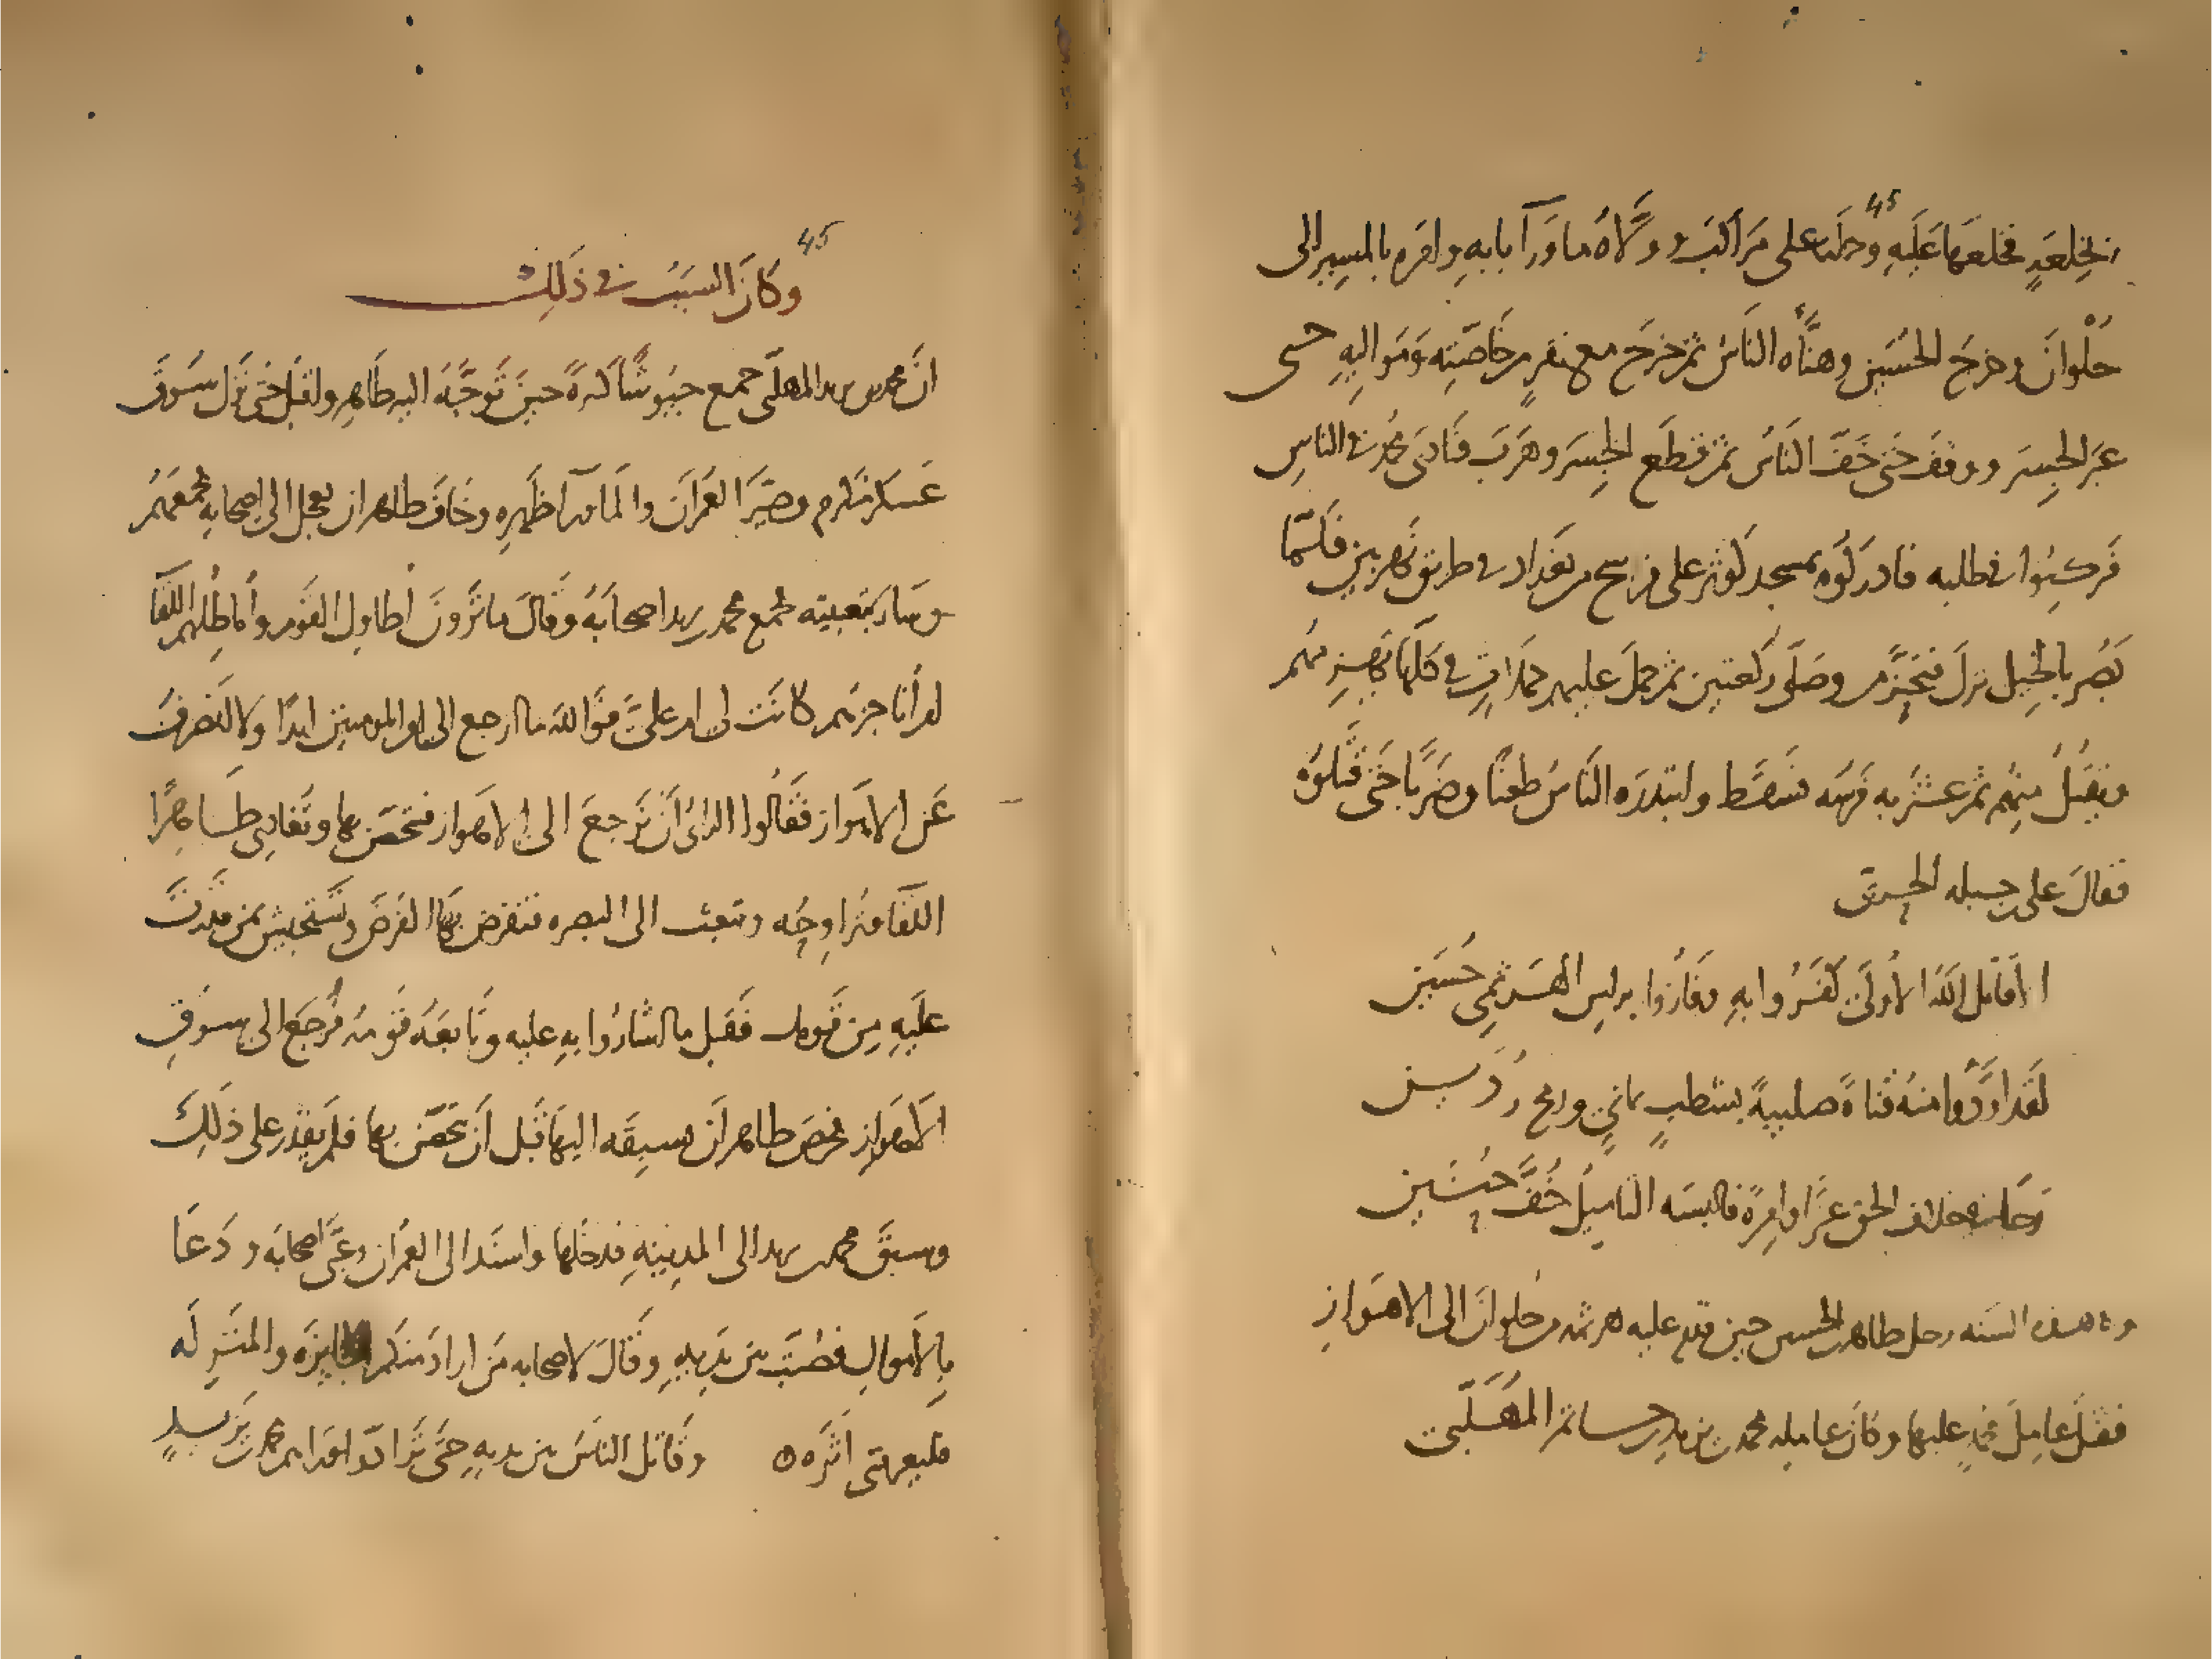 45
بخلعة فخلعها عليه وحمله على مراكب وولاه ما ورآ بابه وامره بالمسير الى
حُلْوانَ وخرج الحُسَين وهنَّأه الناسُ ثم خرج مع نفرٍ من خاصّتِه ومَواليهِ حتى
عبَر الجِسرَ ووقفَ حتى خفَّ الناسُ ثم قطَع الجِسرَ وهرَبَ فنادى محمد في الناسِ
فركِبُوا في طلبه فادركُوه بمسجد كوثر على فرسخ من بغداد في طريق نهربين فلمّا
بَصُر بالخيل نزلَ فتحرَّم وصَلّى ركعتين ثم حملَ عليهم حملاتٍ في كلها يهزمهم
ويقتُلُ منهُم ثم عثَر به فرَسُه فسَقَط وابتدرَه الناسُ طعنًا وضَربًا حتى قتَلوُه
فقالَ على بن جبله الخريمى
الا قاتل اللهُ الأُولَى كفَرُوا بهِ وفازُوا براس الهَرثَمِى حُسَين
لقَد اوردُوا منهُ قناةً صليبةً بشطبٍ يمانىٍ ورمح رُدَينى
رجَا فى خلاف الحق عزًّا وامرةً فالبسَه التاميلُ خُفَّ حُنَين
وفى هذه السنه رحل طاهر بن الحسين حين قدم عليه هرثمه من حلوان الى الاهواز
فقتلَ عامِلَ محمدٍ عليها وكان عامله محمد بن يزيد بن حاتم المُهَلّبى
45
وكانَ السَببُ فى ذَلِك
انَّ محمد بن يزيد المهلّبى جمع جيوشًا كثيرةً حين تَوجَّهَ اليه طاهر واقبل حتى نزل سُوقَ
عَسكر مُكرم وصَيَّرَ العُمرانَ والمآ ورآ ظهرِه وخافَ طاهر ان يعجل الى اصحابه فجمعَهُم
وسَار بتعبيته فجمع محمد بن يزيد اصحابَهُ وقالَ ما ترَونَ أُطاول القَوم وأُماطِلُهم اللقَآ
ام أُناجزهُم كانت لى ام علىَّ فوَالله ما ارجع الى امير المومنين ابدًا ولا انصرفُ
عَن الاهواز فقَالُوا الرائُ ان تَرجعَ الى الاهواز فتحَصّن بها وتُغادِى طاهرًا
اللقَآ وتُراوِحُه وتبعث الى البصره فتفرض بهَا الفَرضَ وتستَجيش بمن قدرتَ
علَيهِ مِن قَومِك فقَبل ما اشارُوا بهِ عليه وتَابعَهُ قَومُه فرجَعَ الى سوقِ
الاهوازِ فحرصَ طاهر ان يسبِقَه اليهَا قبل ان يتحَصّن بها فلم يقدر على ذلِكَ
وسبقَ محمد بن يزيد الى المدينةِ فدخَلها واسنَد الى العُمرَان وعَبَّى اصحابَه ودَعَا
بالأموال فصُبّت بَين يَدَيهِ وقَالَ لاصحابه مَن ارادَ منكم الجايزَه والمنزله
فليعرفنى اثَرَه ه وقَاتل الناسُ بين يديهِ حتَّى ترادّوا فدام محمد بن يزيد